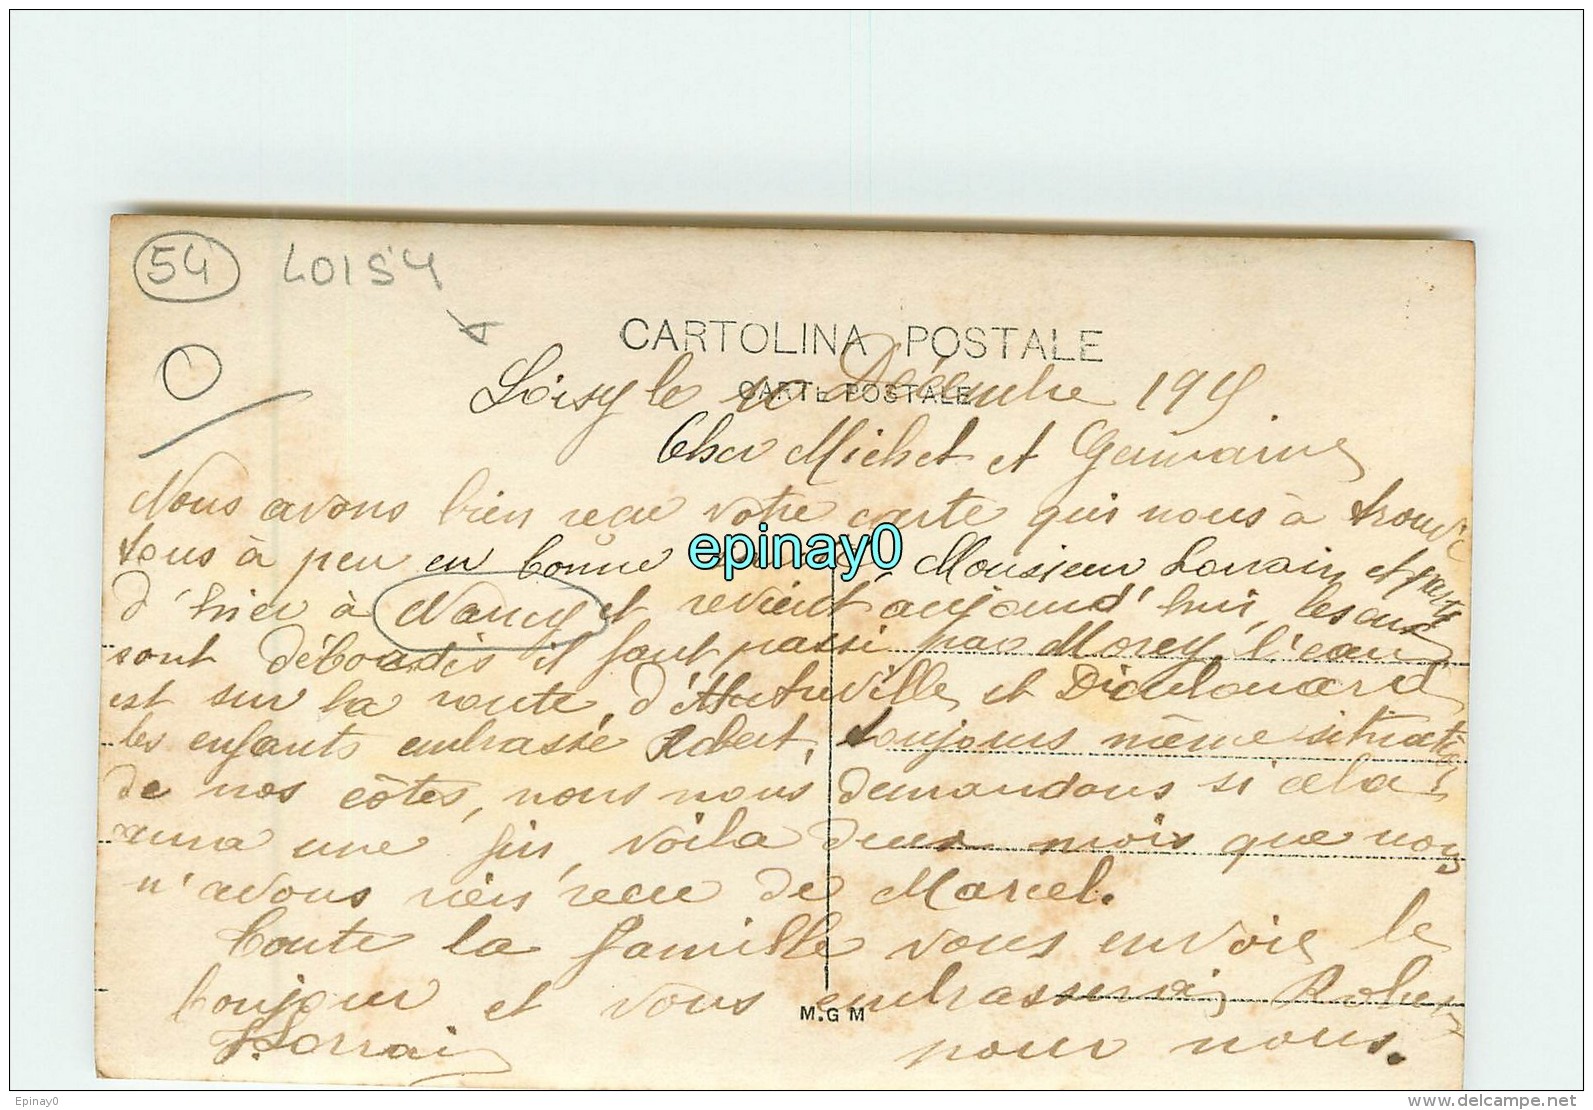 54 LOISY
CARTOLINA POSTALE
CARTE POSTALE
Loisy le 10 Décembre 1915
Cher Michel et Germaine
Nous avons bien recu votre carte qui nous à trouvé
tous à peu en bonne Monsieur Lorrain est parti
d'hier à Nancy et revient aujourd'hui, les eaux
sont débordés il faut passé par Morey, l'eau
est sur la route d'Atteville et Dieulouard
les enfants embrassé Robert, toujours même situation
de nos côtés, nous nous demandons si cela
aura une fin, voila deux mois que nous
n'avons rien recu de Marcel.
Toute la famille vous envoie le
bonjour et vous embrasserai Robert
Lorrain pour nous.
M.G M
epinay0
Epinay0
www.delcampe.net